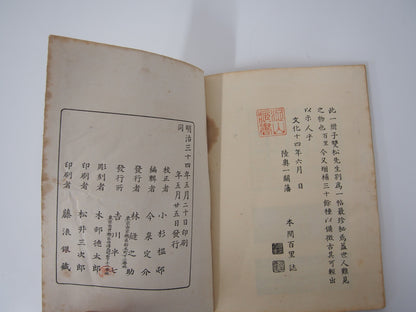 此一冊子雙松先生剞為一帖最珍秘為蓋世人難見
之物也百里今又增補三十餘種以備徵古莫可輕出
以示人乎
文化十四年六月 日
陸奥一關藩
本間百里誌
明治三十四年五月二十日印刷
同 年五月廿五日發行
校正者 小杉榲邨
編輯者 今泉定介
發行者 林縫之助
發行所 吉川半七
彫刻者 木部德太郎
印刷者 松井三次郎
印刷者 藤浪銀藏